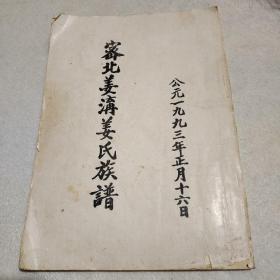 公元一九九三年正月十六日
寗北姜溝姜氏族譜